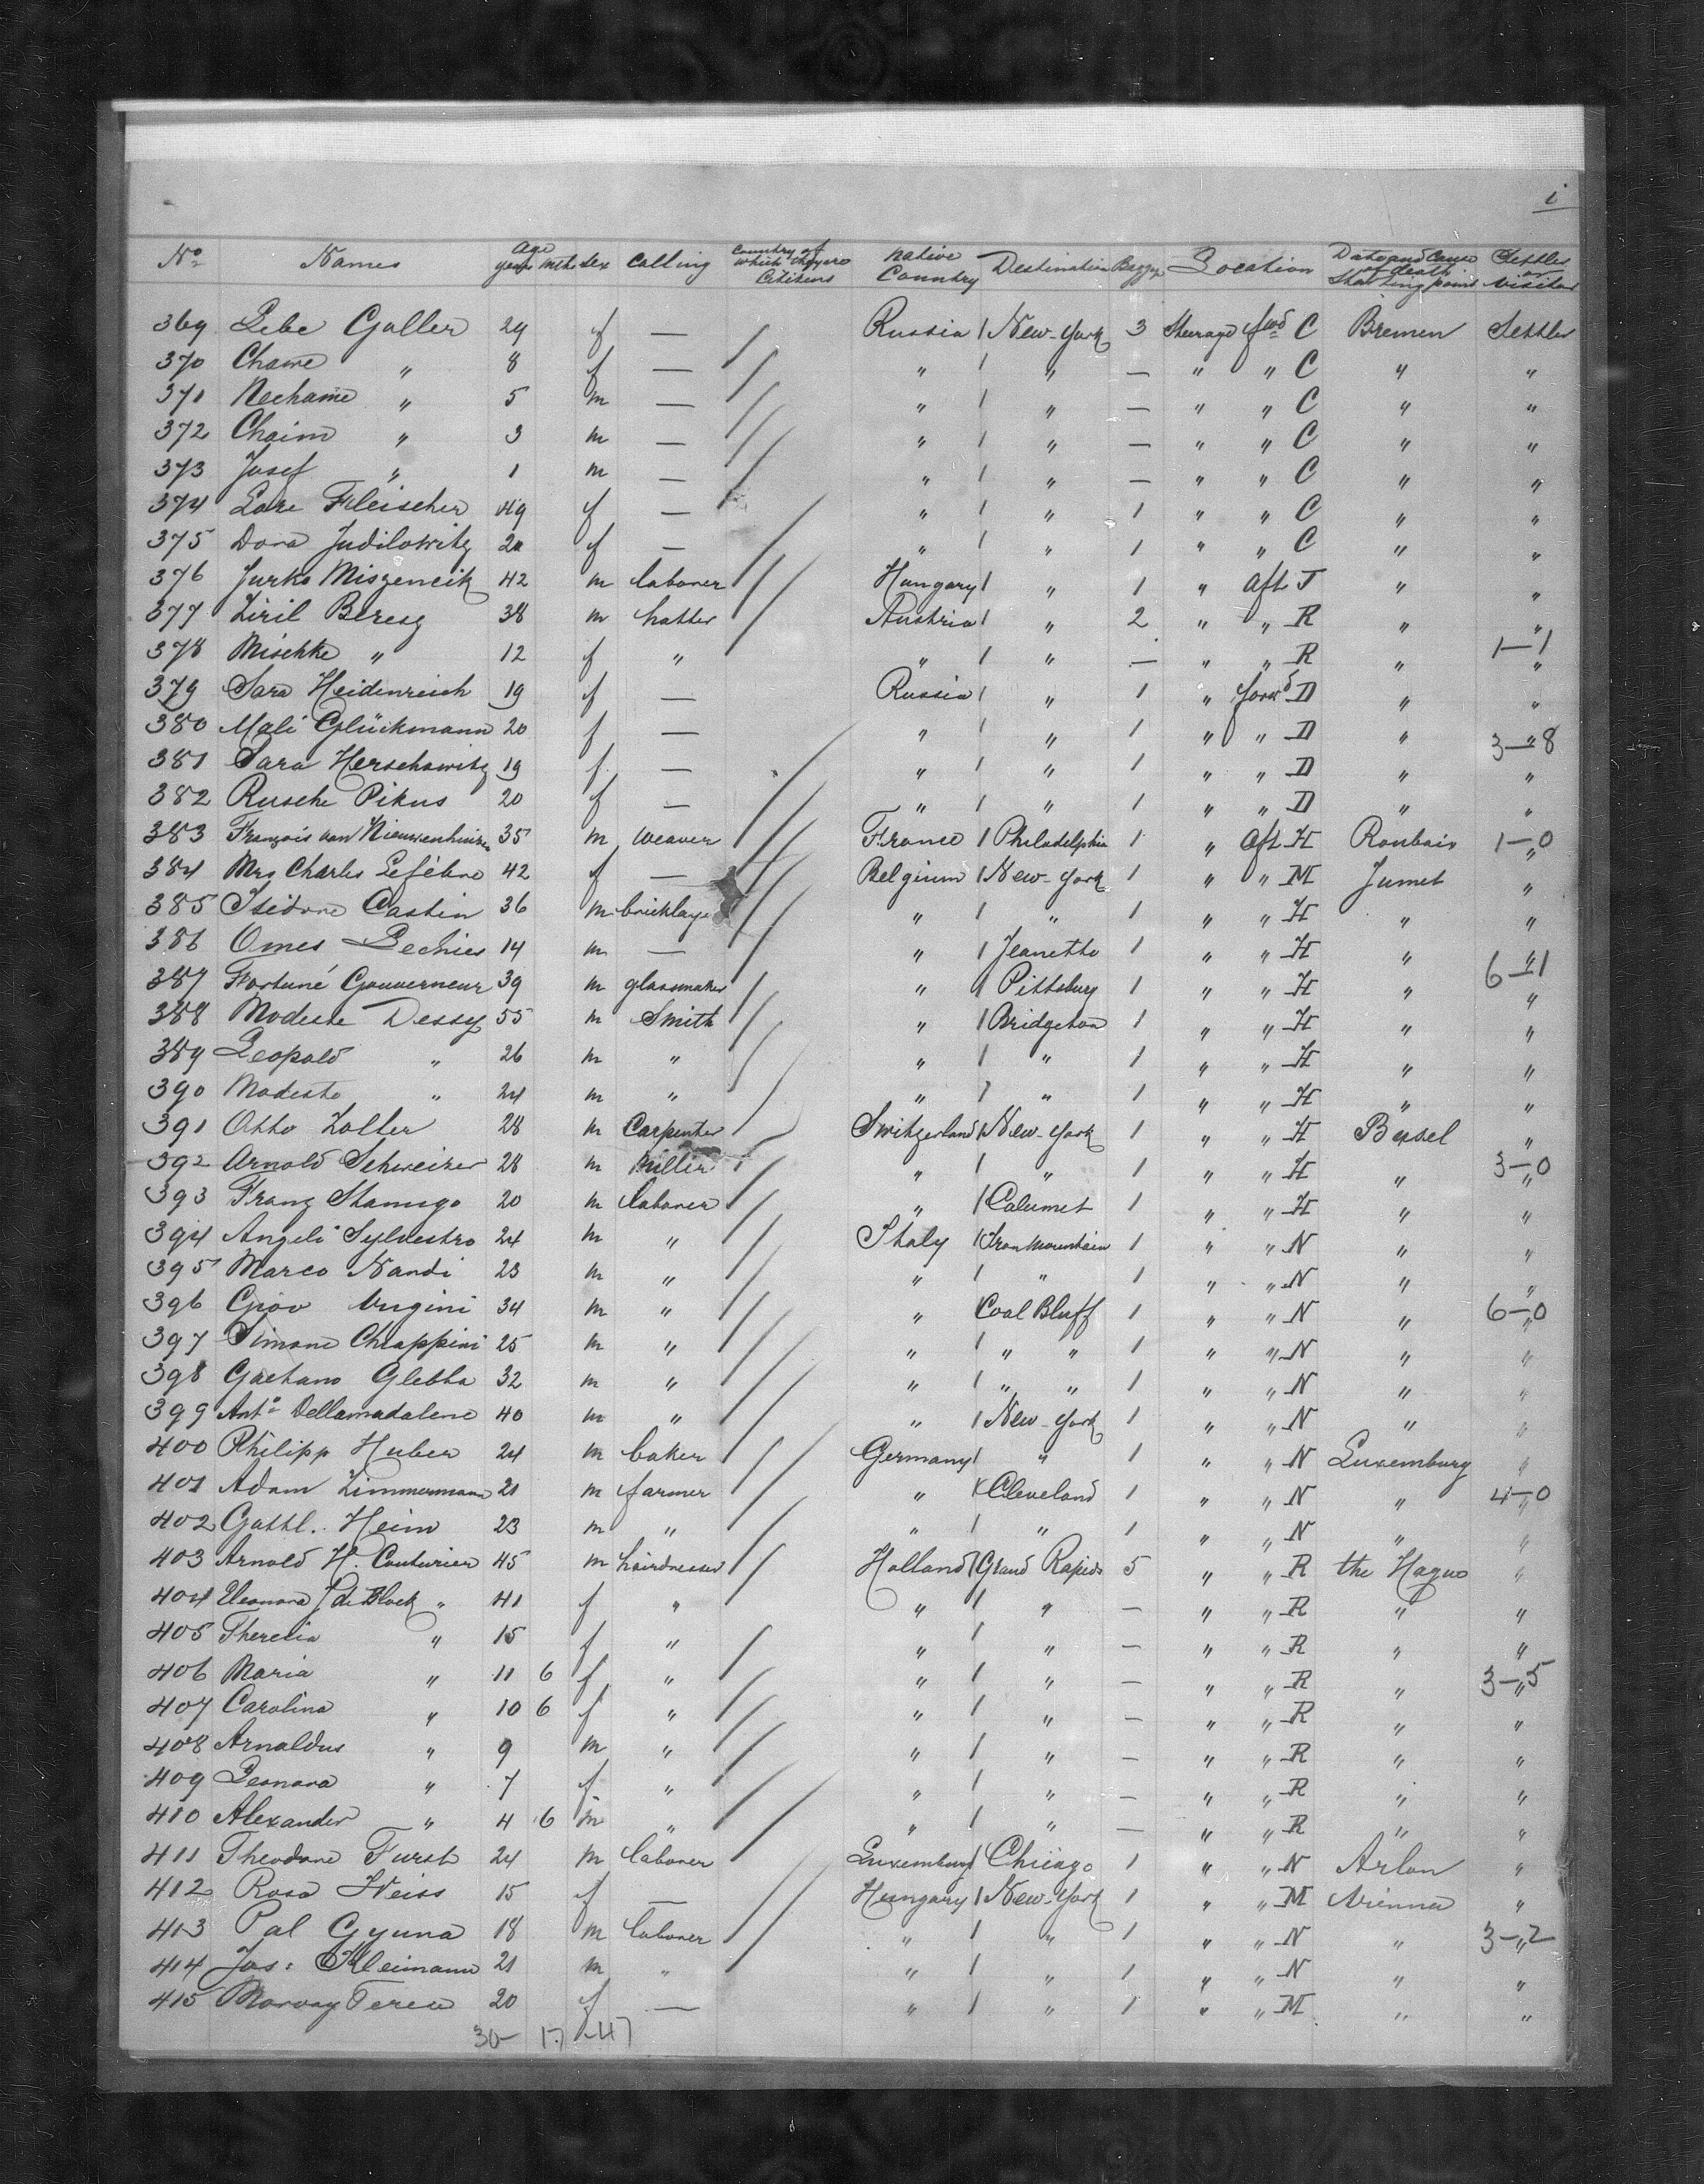 i
No Names Age years mths Sex Calling Country of which they are Citizens Native Country Destination Bagge Location Date and Cause of death Starting point Settler or visitor
369 Lebe Galler 29 f — / Russia / New-York 3 Steerage fwd C Bremen Settler
370 Chawe " 8 f — / " / " — " " C " "
371 Nechame " 5 m — / " / " — " " C " "
372 Chaim " 3 m — / " / " — " " C " "
373 Josef " 1 m — / " / " — " " C " "
374 Lore Fleischer 49 f — / " / " 1 " " C " "
375 Dora Judilowitz 20 f — / " / " 1 " " C " "
376 Jurko Miszencik 42 m laborer / Hungary / " 1 " aft T " "
377 Ziril Beresz 38 m hatter / Austria / " 2 " " R " "
378 Mischke " 12 f " / " / " — " " R " 1—1 "
379 Sara Heidenreich 19 f — / Russia / " 1 " forwd D " "
380 Mali Glückmann 20 f — / " / " 1 " " D " 3—8 "
381 Sara Herschowitz 19 f — / " / " 1 " " D " "
382 Rusche Pikus 20 f — / " / " 1 " " D " "
383 François van Nieuwenhuizen 35 m weaver / France / Philadelphia 1 " aft H Roubaix 1—0 "
384 Mrs Charles Lefébre 42 f — / Belgium / New-York 1 " " M Jumet "
385 Isidore Castin 36 m bricklayer / " / " 1 " " H " "
386 Omes Lechies 14 m — / " / Jeanette 1 " " H " 6—1 "
387 Fortuné Gouverneur 39 m glassmaker / " / Pittsburg 1 " " H " "
388 Modeste Dessy 55 m Smith / " / Bridgeton 1 " " H " "
389 Leopold " 26 m " / " / " 1 " " H " "
390 Modeste " 24 m " / " / " 1 " " H " "
391 Otto Zoller 28 m Carpenter / Switzerland / New-York 1 " " H Basel "
392 Arnold Schweizer 28 m Miller / " / " 1 " " H " 3—0 "
393 Franz Stamugo 20 m laborer / " / Calumet 1 " " H " "
394 Angeli Sylvestro 24 m " / Italy / Iron Mountain 1 " " N " "
395 Marco Nandi 23 m " / " / " 1 " " N " "
396 Giov Vugini 34 m " / " / Coal Bluff 1 " " N " 6—0 "
397 Simone Chiappini 25 m " / " / " " 1 " " N " "
398 Gaetano Glebba 32 m " / " / " " 1 " " N " "
399 Anto Dellamadalene 40 m " / " / New-York 1 " " N " "
400 Philipp Huber 24 m baker / Germany / " 1 " " N Luxemburg "
401 Adam Zimmermann 21 m farmer / " / Cleveland 1 " " N " 4—0 "
402 Gottl. Heim 23 m " / " / " 1 " " N " "
403 Arnold H. Couturier 45 m hairdresser / Holland / Grand Rapids 5 " " R the Hague "
404 Eleonora J de Block " 41 f " " / " — " " R " "
405 Theresia " 15 f " / " / " — " " R " "
406 Maria " 11 6 f " / " / " — " " R " 3—5 "
407 Carolina " 10 6 f " / " / " — " " R " "
408 Arnoldus " 9 m " / " / " — " " R " "
409 Leonora " 7 f " / " / " — " " R " "
410 Alexander " 4 6 m " / " / " — " " R " "
411 Theodore Furst 24 m laborer / Luxemburg / Chicago 1 " " N Arlon "
412 Rosa Weiss 15 f — / Hungary / New-York 1 " " M Vienna "
413 Pal Gyuna 18 m laborer / " / " 1 " " N " 3—2 "
414 Jos: Kleimann 21 m " / " / " 1 " " N " "
415 Morvay Terese 20 f — " / " 1 " " M " "
30 17 -47